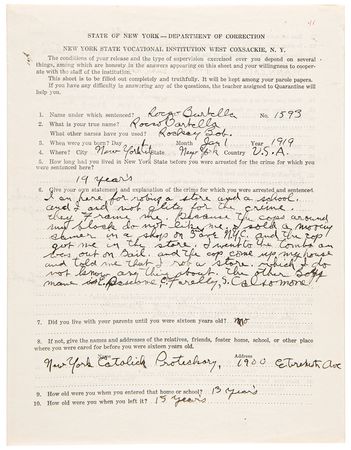 41
STATE OF NEW YORK—DEPARTMENT OF CORRECTION
NEW YORK STATE VOCATIONAL INSTITUTION WEST COXSACKIE, N. Y.
The conditions of your release and the type of supervision exercised over you depend on several
things, among which are honesty in the answers appearing on this sheet and your willingness to cooper-
ate with the staff of the institution.
This sheet is to be filled out completely and truthfully. It will be kept among your parole papers.
If you have any difficulty in answering any of the questions, the teacher assigned to Quarantine will
help you.
1. Name under which sentenced? Rocco Barbella No. 1593
2. What is your true name? Rocco Barbella
What other names have you used? Rocky Bob.
3. When were you born? Day 1 Month Jan Year 1919
4. Where? City New York State New York Country U.S.A.
5. How long had you lived in New York State before you were arrested for the crime for which you
were sentenced here?
19 years
6. Give your own statement and explanation of the crime for which you were arrested and sentenced.
I am here for robing a store and a school.
and I did not plede for the crime.
they frame me. Because the cops around
my block do not like me. I sold a
in a shop on 5 ave N.Y.C. and the cop
got me in the store. I went to the tombs an
out on Bail. and the cop come up my house
and told me that I rob a store. which I do
not know any thing about. the other Boys
name
7. Did you live with your parents until you were sixteen years old? no
8. If not, give the names and addresses of the relatives, friends, foster home, school, or other place
where you were cared for before you were sixteen years old.
Name Address
New York Catolick Protectory, 1900 E. Tremont Ave
9. How old were you when you entered that home or school? 13 years
10. How old were you when you left it? 15 years